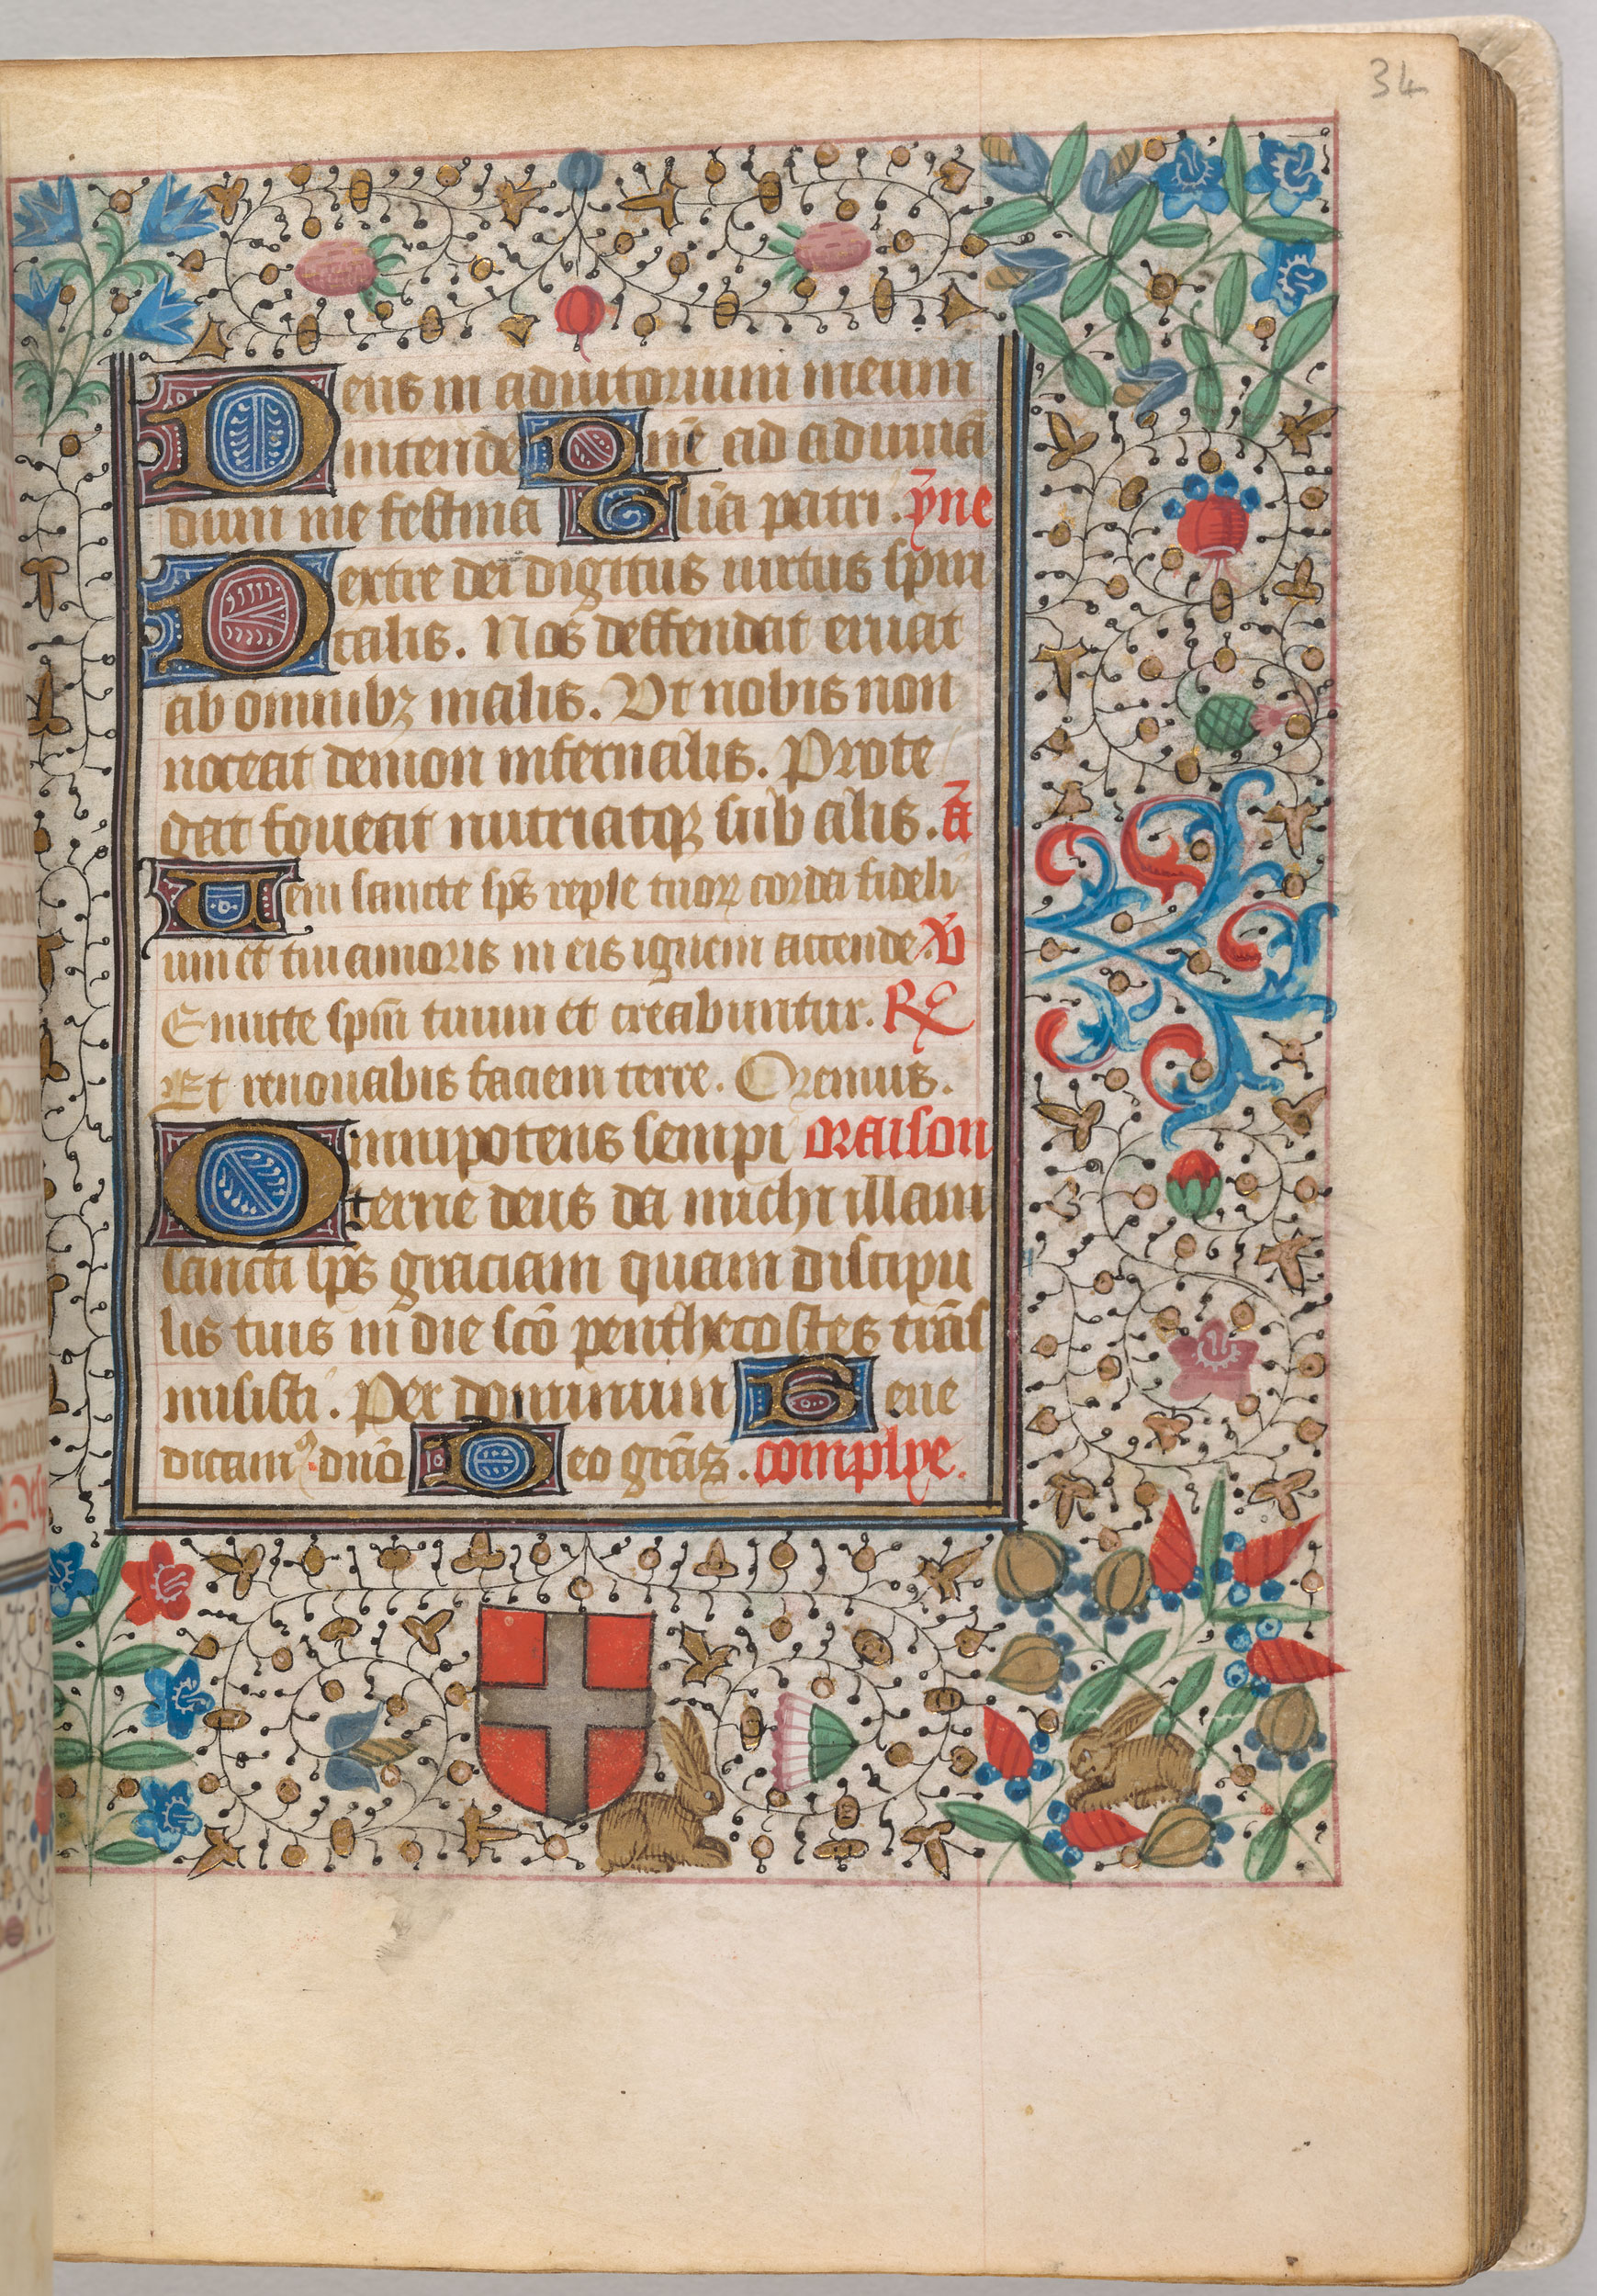 34
Deus in adiutorium meum
intende Dn̄e ad adiuuā
dum me festina Gl̄ia patri. ȳne
Dextre dei digitus uirtus spiri
talis. Nos deffendat eruat
ab omnibꝫ malis. Vt nobis non
noceat demon infernalis. Prote
gat foueat nutriatqꝫ sub alis. ā
Ueni sancte sp̄s reple tuoꝝ corda fideli
um et tui amoris in eis ignem accende. v̄
Emitte spm̄ tuum et creabuntur. ℞
Et renouabis faciem terre. Oremus.
Omnipotens sempi oraison
terne deus da michi illam
sancti sp̄s graciam quam discipu
lis tuis in die scō penthecostes trās
misisti. Per dominum Bene
dicamꝰ dn̄o Deo grās. complye.